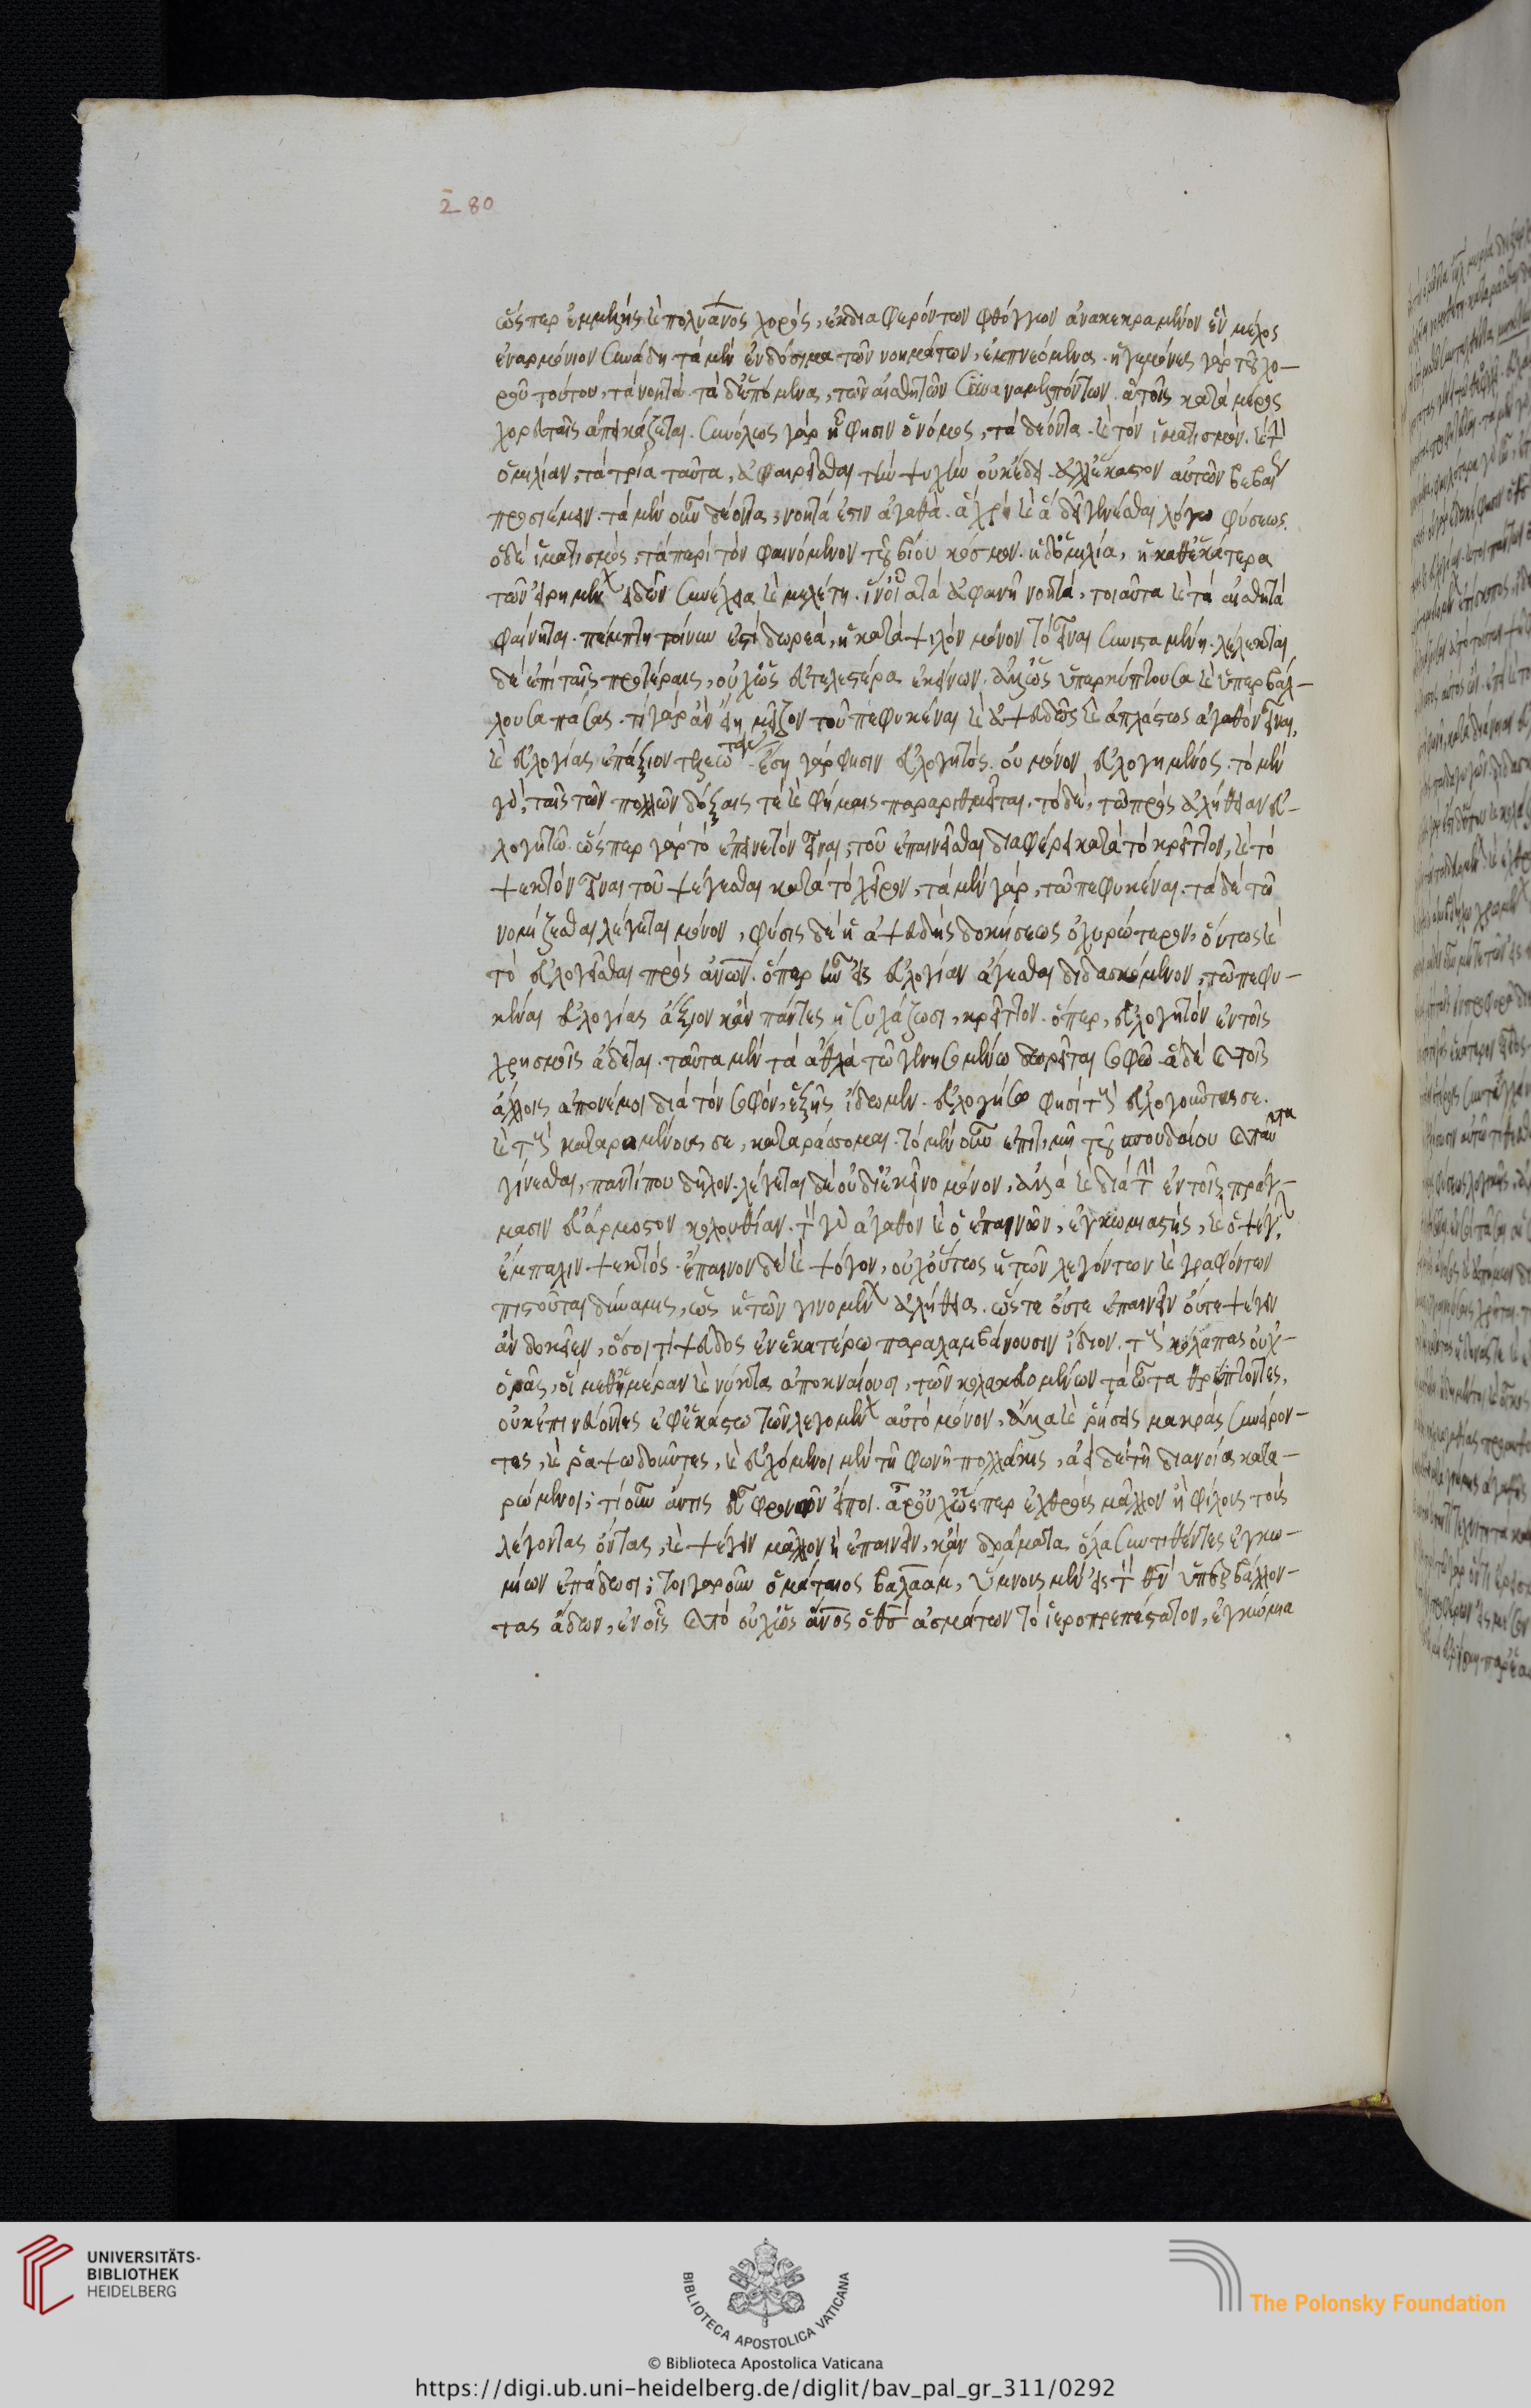 280
ὥσπερ ἐμμελὴς καὶ πολυανος χορός, ἐκ διαφερόντων φθόγγων ἀνακεκραμένον ἓν μέλος
ἐναρμόνιον συνάδῃ τὰ μὲν ἐνδόσιμα τῶν νοημάτων, ἐμπνεόμενα. ἡγεμόνες γὰρ τοῦ χο-
ροῦ τούτου, τὰ νοητά. τὰ δ' ἑπόμενα, τῶν αἰσθητῶν συναναμελπόντων. ἃ τοῖς κατὰ μέρος
χορευταῖς ἀπεικάζεται. συνόλως γὰρ ᾗ φησιν ὁ νόμος, τὰ δέοντα καὶ τὸν ἱματισμὸν καὶ τὴν
ὁμιλίαν, τὰ τρία ταῦτα, ἀφαιρεῖσθαι τὴν ψυχὴν οὐκ ἔδει. ἀλλ' ἕκαστον αὐτῶν βεβαίως
προσιέμεν. τὰ μὲν οὖν δέοντα, νοητά ἐστιν ἀγαθά. ἃ χρὴ καὶ ἃ δεῖ γενέσθαι λόγω φύσεως.
ὁ δὲ ἱματισμὸς, τὰ περὶ τὸν φαινόμενον τοῦ βίου κόσμον. ἡ δ' ὁμιλία, ἡ καθ' ἑκάτερα
τῶν εἰρημένων εἰδῶν συνέχεια καὶ μελέτη. ἵν' οἷα τὰ ἀφανῆ νοητά, τοιαῦτα καὶ τὰ αἰσθητὰ
φαίνηται. πέμπτη τοίνυν ἐστὶ δωρεά, ἡ κατὰ ψιλὸν μόνον τὸ εἶναι συνισταμένη. λέλεκται
δὲ ἐπὶ ταῖς προτέραις, οὐχ ὡς εὐτελεστέρα ἐκείνων. ἀλλ' ὡς ὑπερκύπτουσα καὶ ὑπερβάλ-
λουσα πάσας. τί γὰρ ἂν εἴη μεῖζον τοῦ πεφυκέναι καὶ ἀψευδῶς καὶ ἀπλάστως ἀγαθὸν εἶναι,
καὶ εὐλογίας ἐπάξιον. ἔση γὰρ φησιν εὐλογητός. οὐ μόνον εὐλογημένος. τὸ μὲν
γὰρ, ταῖς τῶν πολλῶν δόξαις τὲ καὶ φήμαις παραριθμεῖται. τὸ δὲ, τῶ πρὸς ἀλήθειαν εὐ-
λογητῶ. ὥσπερ γὰρ τὸ ἐπαινετὸν εἶναι, τοῦ ἐπαινεῖσθαι διαφέρει κατὰ τὸ κρεῖττον, καὶ τὸ
ψεκτὸν εἶναι τοῦ ψέγεσθαι κατὰ τὸ χεῖρον, τὰ μὲν γάρ, τῶ πεφυκέναι. τὰ δὲ τῶ
νομίζεσθαι λέγεται μόνον, φύσις δὲ ἡ ἀψευδὴς δοκήσεως ὀχυρώτερον, οὕτως καὶ
τὸ εὐλογεῖσθαι πρὸς ἀνων. ὅπερ ἦν εἰς εὐλογίαν ἄγεσθαι διδασκόμενον, τῶ πεφυ-
κέναι εὐλογίας ἄξιον κἂν πάντες ἡσυχάζωσι, κρεῖττον. ὅπερ, εὐλογητὸν ἐν τοῖς
χρησμοῖς ἄδεται. ταῦτα μὲν τὰ ἆθλα τῶ γενησομένω δωρεῖται σοφῶ. ἃ δὲ καὶ τοῖς
ἄλλοις ἀπονέμοι διὰ τὸν σοφὸν, ἑξῆς ἴδωμεν. εὐλογήσω φησὶ τοὺς εὐλογοῦντας σε.
καὶ τοὺς καταρωμένους σε, καταράσσομαι. τὸ μὲν οὖν ἐπὶ τιμῇ τοῦ σπουδαίου καὶ ταῦτα
γίνεσθαι, παντί που δῆλον. λέγεται δὲ οὐ δι' ἐκεῖνο μόνον, ἀλλὰ καὶ διὰ τὴν ἐν τοῖς πράγ-
μασιν εὐάρμοστον ἀκολουθίαν. τὸν γὰρ ἀγαθὸν καὶ ὁ ἐπαινῶν, ἐγκωμιαστὸς, καὶ ὁ ψέγων
ἔμπαλιν ψεκτός. ἔπαινον δὲ καὶ ψόγον, οὐχ οὕτως ἡ τῶν λεγόντων καὶ γραφόντων
πιστοῦται δύναμις, ὡς ἡ τῶν γινομένων ἀλήθεια. ὥστε οὔτε ἐπαινεῖν οὔτε ψέγειν
ἂν δοκεῖεν, ὅσοι τί ψεῦδος ἐν ἑκατέρω παραλαμβάνουσιν εἶδον. τοὺς κόλακας οὐχ
ὁρᾷς, οἳ μεθ' ἡμέραν καὶ νύκτα ἀποκναίουσι, τῶν κολακευομένων τὰ ὦτα θρύπτοντες,
οὐκ ἐπινεύοντες ἐφ' ἑκάστω τῶν λεγομένων αὐτὸ μόνον, ἀλλὰ καὶ ῥήσεις μακρὰς συνείρον-
τες, καὶ ῥαψωδοῦντες, καὶ εὐχόμενοι μὲν τῇ φωνῇ πολλάκις, ἀεὶ δὲ τῇ διανοία κατα-
ρώμενοι; τί οὖν ἄν τις εὖ φρονῶν εἴποι. ἆρ' οὐχ ὥσπερ ἐχθροὺς μᾶλλον ἢ φίλους τοὺς
λέγοντας ὄντας, καὶ ψέγειν μᾶλλον ἢ ἐπαινεῖν, κἂν δράματα ὅλα συντιθέντες ἐγκω-
μίων ἐπάδωσι; τοιγαροῦν ὁ μάταιος βαλαάμ, ὕμνους μὲν εἰς τὸν θν ὑπερβάλλον-
τας ἄδων, ἐν οἷς καὶ τὸ οὐχ ὡς ανος ὁ θς ἀσμάτων τὸ ἱεροπρεπέστατον, ἐγκώμια
UNIVERSITÄTS-
BIBLIOTHEK
HEIDELBERG
BIBLIOTECA APOSTOLICA VATICANA
The Polonsky Foundation
© Biblioteca Apostolica Vaticana
https://digi.ub.uni-heidelberg.de/diglit/bav_pal_gr_311/0292